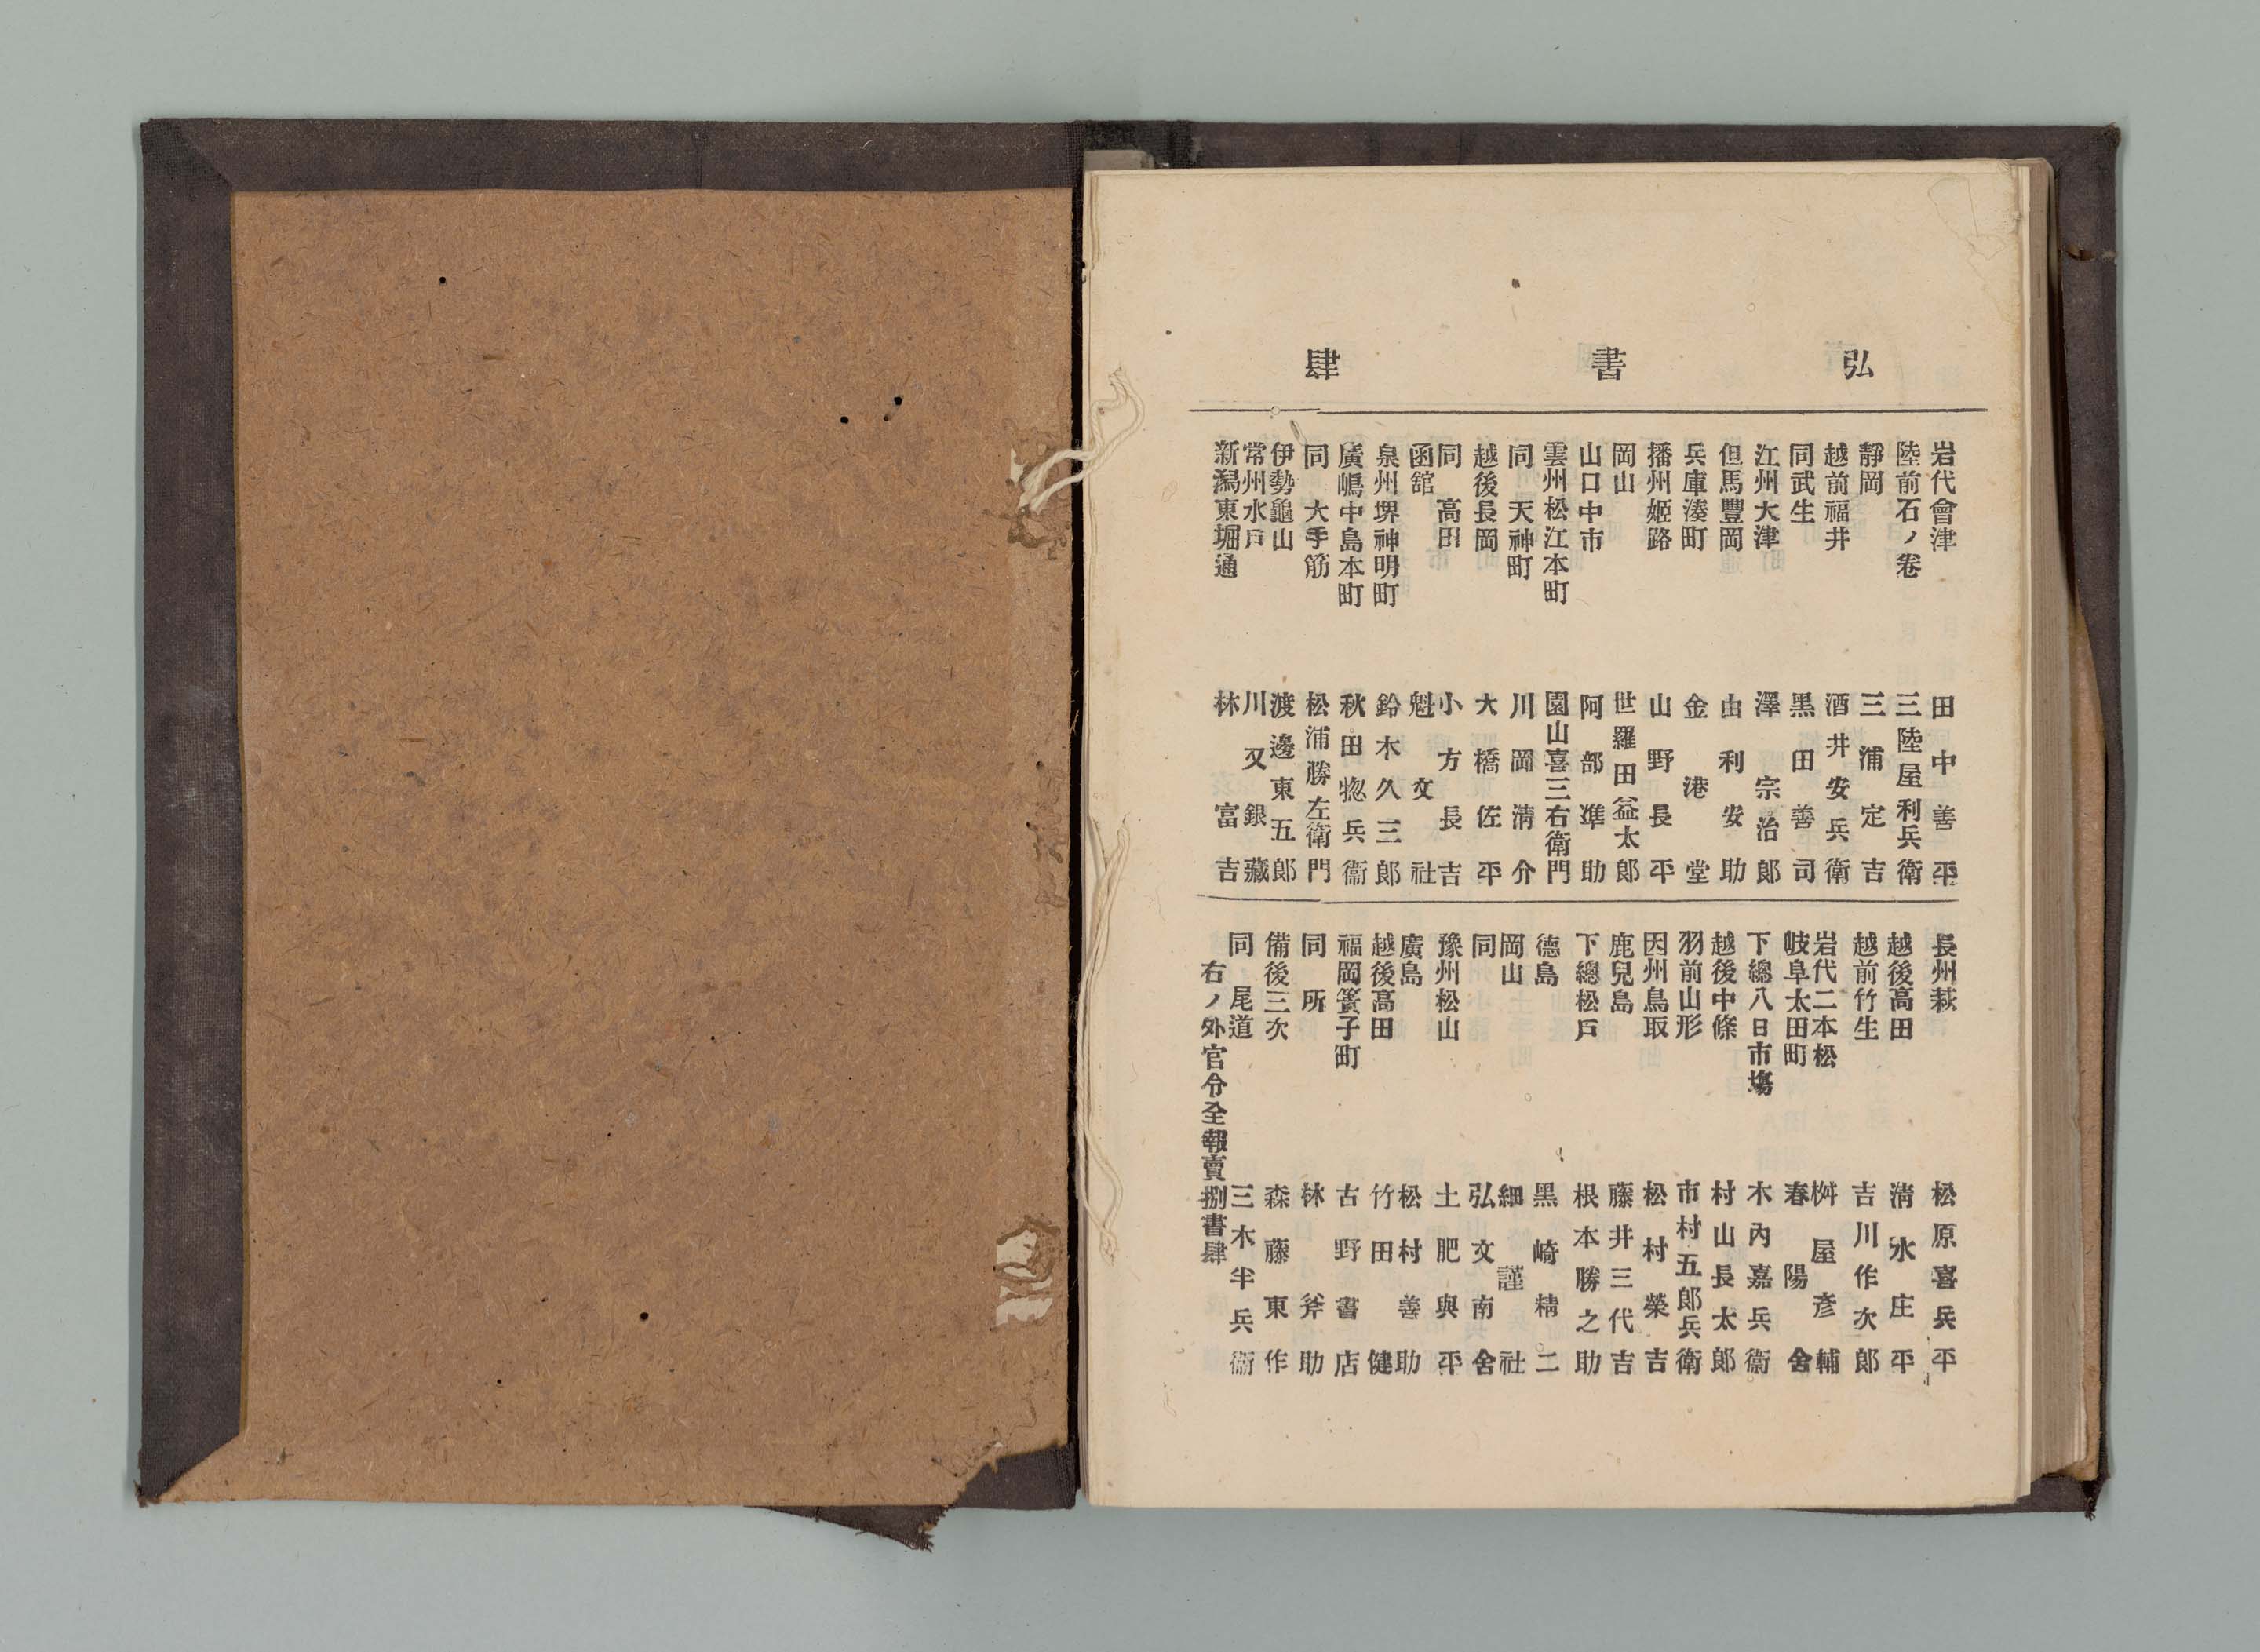 弘書肆
岩代會津 田中善平
陸前石ノ卷 三陸屋利兵衛
靜岡 三浦定吉
越前福井 酒井安兵衛
同武生 黒田善司
江州大津 澤宗治郎
但馬豐岡 由利安助
兵庫湊町 金港堂
播州姫路 山野長平
岡山 世羅田益太郎
山口中市 阿部凖助
雲州松江本町 園山喜三右衛門
同天神町 川岡清介
越後長岡 大橋佐平
同高田 小方長吉
函舘 魁文社
泉州堺神明町 鈴木久三郎
廣嶋中島本町 秋田惣兵衞
同大手筋 松浦勝左衛門
伊勢龜山 渡邊東五郎
常州水戸 川又銀藏
新潟東堀通 林富吉
長州萩 松原喜兵平
越後高田 清水庄平
越前竹生 吉川作次郎
岩代二本松 桝屋彦輔
岐阜太田町 春陽舍
下總八日市塲 木內嘉兵衞
越後中條 村山長太郎
羽前山形 市村五郎兵衛
因州鳥取 松村榮吉
鹿兒島 藤井三代吉
下總松戸 根本勝之助
德島 黒崎精二
岡山 細謹社
同 弘文南舍
豫州松山 土肥與平
廣島 松村善助
越後高田 竹田健
福岡簀子町 古野書店
同所 林斧助
備後三次 森藤東作
同尾道 三木半兵衞
右ノ外官令全報賣捌書肆